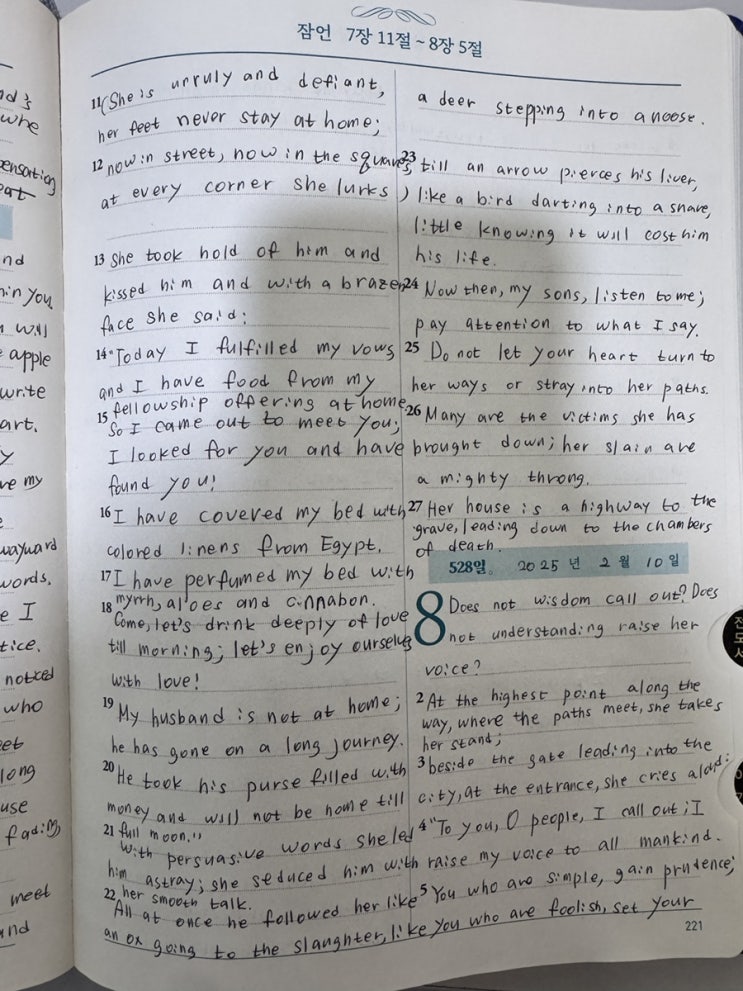 whe
pensation
will
apple
write
art.
ve my
wayward
words.
e I
tice.
noticed
who
long
use
fading
meet
잠언 7장 11절 ~ 8장 5절
11 (She is unruly and defiant,
her feet never stay at home;
12 now in street, now in the squares
at every corner she lurks )
13 She took hold of him and
kissed him and with a brazen
face she said:
14 "Today I fulfilled my vows
and I have food from my
fellowship offering at home
15 So I came out to meet you;
I looked for you and have
found you!
16 I have covered my bed with
colored linens from Egypt.
17 I have perfumed my bed with
myrrh, aloes and cinnabon.
18 Come, let's drink deeply of love
till morning; let's enjoy ourselves
with love!
19 My husband is not at home;
he has gone on a long journey.
20 He took his purse filled with
money and will not be home till
full moon."
21 With persuasive words she led
him astray; she seduced him with
her smooth talk.
22 All at once he followed her like
an ox going to the slaughter, like
a deer stepping into a noose.
23 till an arrow pierces his liver,
like a bird darting into a snare,
little knowing it will cost him
his life.
24 Now then, my sons, listen to me;
pay attention to what I say.
25 Do not let your heart turn to
her ways or stray into her paths.
26 Many are the victims she has
brought down; her slain are
a mighty throng.
27 Her house is a highway to the
grave, leading down to the chambers
of death.
528일. 2025 년 2 월 10 일
8 Does not wisdom call out? Does
not understanding raise her
voice?
2 At the highest point along the
way, where the paths meet, she takes
her stand;
3 beside the gate leading into the
city, at the entrance, she cries aloud:
4 "To you, O people, I call out; I
raise my voice to all mankind.
5 You who are simple, gain prudence;
You who are foolish, set your
221
전도서